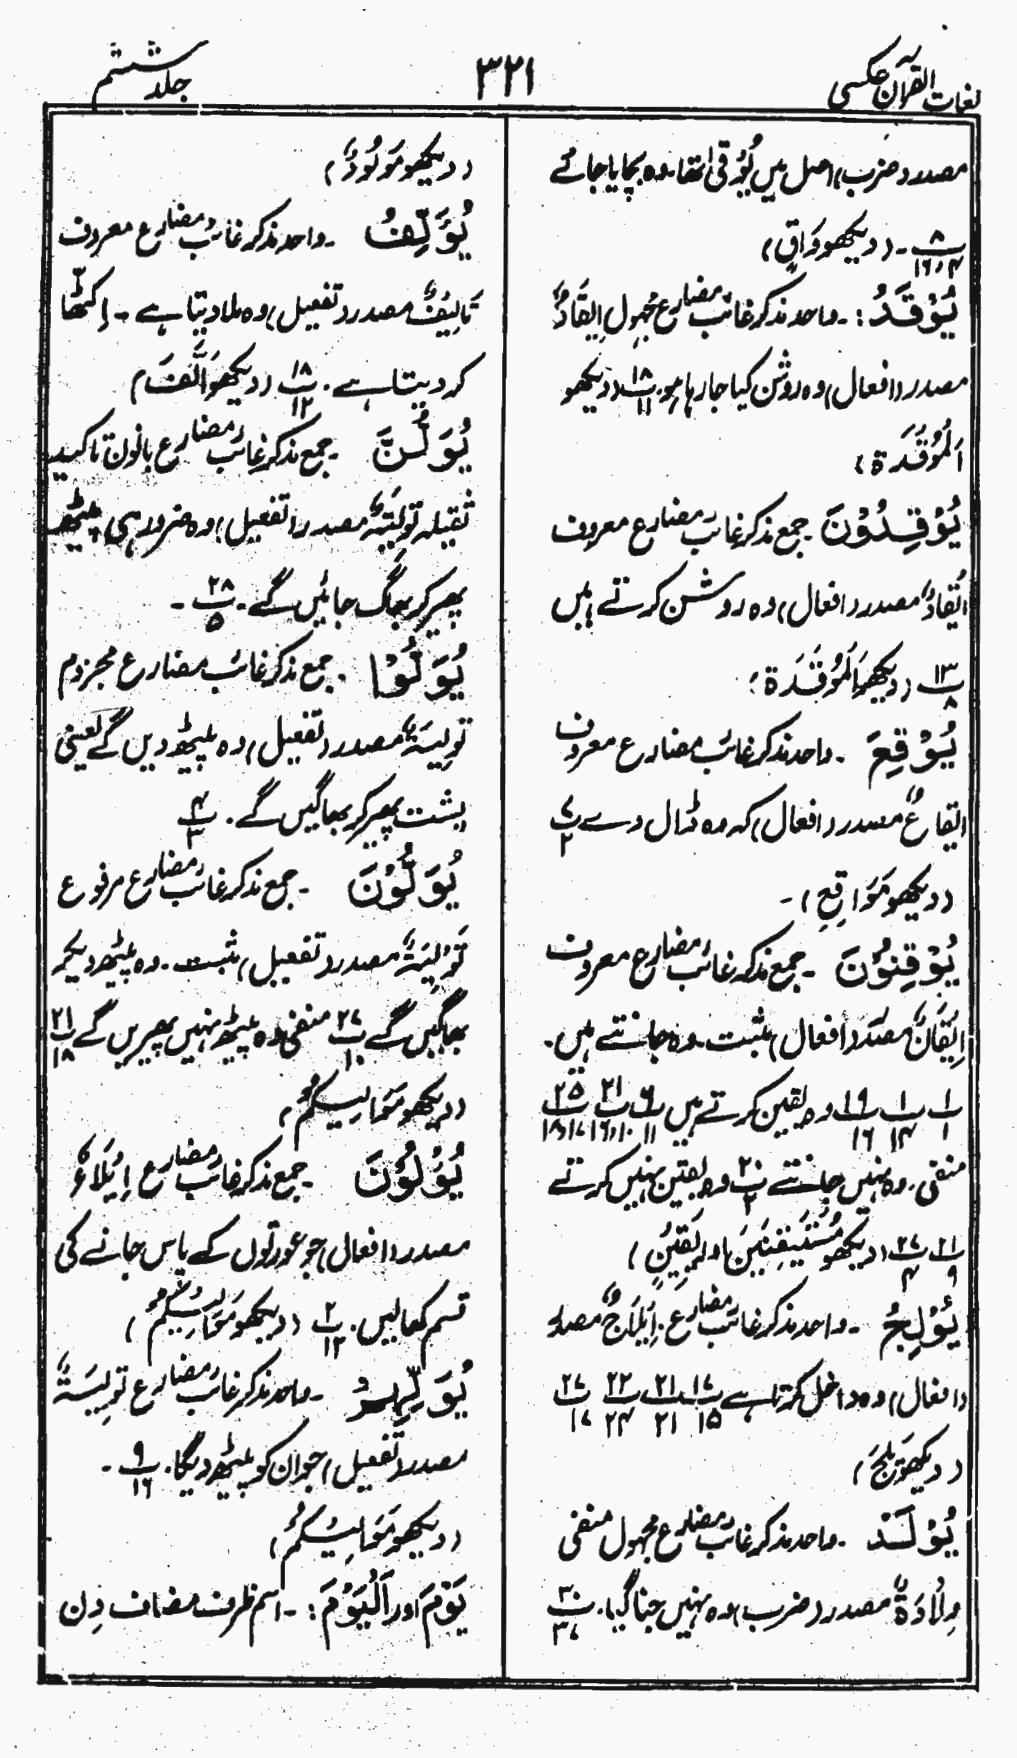 لغات القرآن عکسی
۳۲۱
جلد ششم
مصدر (ضرب) اصل میں یُوْقَیُ تھا۔ وہ بچایا جائے
پ۸ ۱۶،۴ ۔ (دیکھو وَاقٍ)
یُوْقَدُ :۔ واحد مذکر غائب مضارع مجہول اِیقَادٌ
مصدر (افعال) وہ روشن کیا جا رہا ہو۔ پ۱۸ ۱۱ (دیکھو
اَلْمُوْقَدَة)
یُوْقِدُوْنَ ۔ جمع مذکر غائب مضارع معروف
اِیْقَادٌ مصدر (افعال) وہ روشن کرتے ہیں
پ۱۳ ۸ (دیکھو اَلْمُوْقَدَة)
یُوْقِعَ ۔ واحد مذکر غائب مضارع معروف
ایقاعٌ مصدر (افعال) کہ وہ ڈال دے پ۷ ۲
(دیکھو مَوَاقِعِ) ۔
یُوْقِنُوْنَ ۔ جمع مذکر غائب مضارع معروف
اِیْقَانٌ مصدر (افعال) مثبت۔ وہ جانتے ہیں۔
پ۱ ۱ پ۱ ۱۴ پ۱۹ ۱۶ وہ یقین کرتے ہیں پ۶ ۱۱ پ۲۱ ۱۶،۱۰ پ۲۵ ۱۸،۱۷
منفی۔ وہ نہیں جانتے پ۲۰ ۲ وہ یقین نہیں کرتے
پ۲۱ ۹ پ۲۷ ۴ (دیکھو مُسْتَیْقِنِیْنَ اور یَقِیْنٍ)
یُوْلِجُ ۔ واحد مذکر غائب مضارع۔ اِیْلَاجٌ مصدر
(افعال) وہ داخل کرتا ہے پ۱۷ ۱۵ پ۲۱ ۲۱ پ۲۲ ۲۴ پ۲۷ ۱۷
(دیکھو یَلِجَ)
یُوْلَدْ ۔ واحد مذکر غائب مضارع مجہول منفی
وِلَادَةٌ مصدر (ضرب) وہ نہیں جنا گیا۔ پ۳۰ ۳۷
(دیکھو مَوْلُوْدٌ)
یُؤَلِّفُ ۔ واحد مذکر غائب مضارع معروف
تَالِیْفٌ مصدر (تفعیل) وہ ملا دیتا ہے ۔ اِکٹھا
کر دیتا ہے ۔ پ۱۸ ۱۲ (دیکھو اَلَّفَ)
یُوَلُّنَّ ۔ جمع مذکر غائب مضارع بانون تاکید
ثقیلہ تَوْلِیَةٌ مصدر (تفعیل) وہ ضرور ہی پیٹھ
پھیر کر بھاگ جائیں گے ۔ پ۲۸ ۵ ۔
یُوَلُّوْا ۔ جمع مذکر غائب مضارع مجزوم
تَوْلِیَةٌ مصدر (تفعیل) وہ پیٹھ دیں گے یعنی
پشت پھیر کر بھاگیں گے ۔ پ۴ ۳
یُوَلُّوْنَ ۔ جمع مذکر غائب مضارع مرفوع
تَوْلِیَةٌ مصدر (تفعیل) مثبت ۔ وہ پیٹھ دیکر
بھاگیں گے پ۲۷ ۱۰ منفی وہ پیٹھ نہیں پھیریں گے پ۲۱ ۱۸
(دیکھو مَوَالِیْکُمْ)
یُؤْلُوْنَ ۔ جمع مذکر غائب مضارع اِیْلَاءٌ
مصدر (افعال) جو عورتوں کے پاس جانے کی
قسم کھالیں ۔ پ۲ ۱۲ (دیکھو مَوَالِیْکُمْ)
یُوَلِّهِمْ ۔ واحد مذکر غائب مضارع تَوْلِیَةٌ
مصدر (تفعیل) جو ان کو پیٹھ دیگا ۔ پ۹ ۱۶ ۔
(دیکھو مَوَالِیْکُمْ)
یَوْمَ اور اَلْیَوْمَ :۔ اسم ظرف مضاف دِن